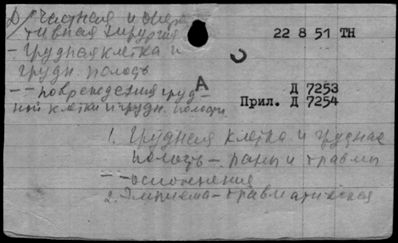 D/ Частная и опера-
тивная хирургия
- Грудная клетка и
грудн. полость
-- повреждения груд-
ной клетки и грудн. полости
А
22 8 51 ТН
Д 7253
Прил. Д 7254
1. Грудная клетка и грудная
полость - раны и травмы
-- осложнения
2. Эмпиема - травматическая